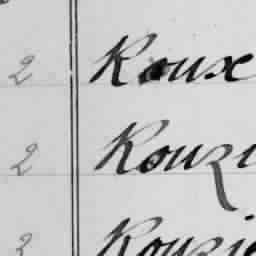 2 Roux
2 Rouzi
2 Rouzie